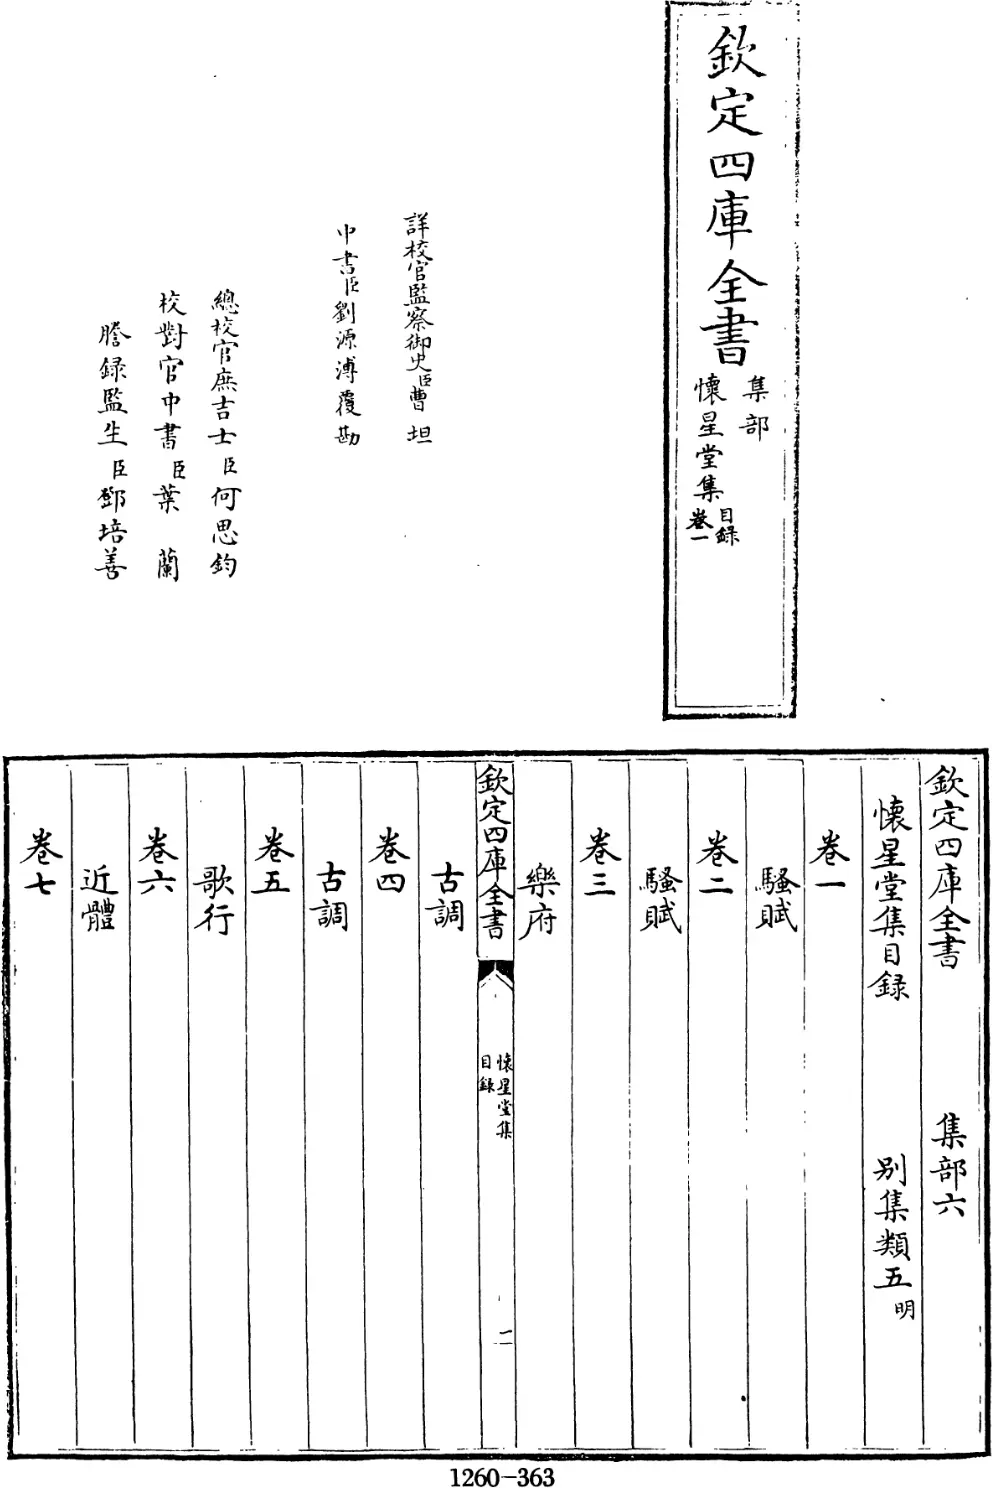 欽定四庫全書
集部
懷星堂集
目錄
卷一
詳校官監察御史臣曹坦
中書臣劉源溥覆勘
總校官庶吉士臣何思鈞
校對官中書臣葉蘭
謄録監生臣鄧培善
欽定四庫全書 集部六
懷星堂集目録 别集類五明
卷一
騷賦
卷二
騷賦
卷三
樂府
欽定四庫全書
懷星堂集
目録
一
古調
卷四
古調
卷五
歌行
卷六
近體
卷七
1260-363